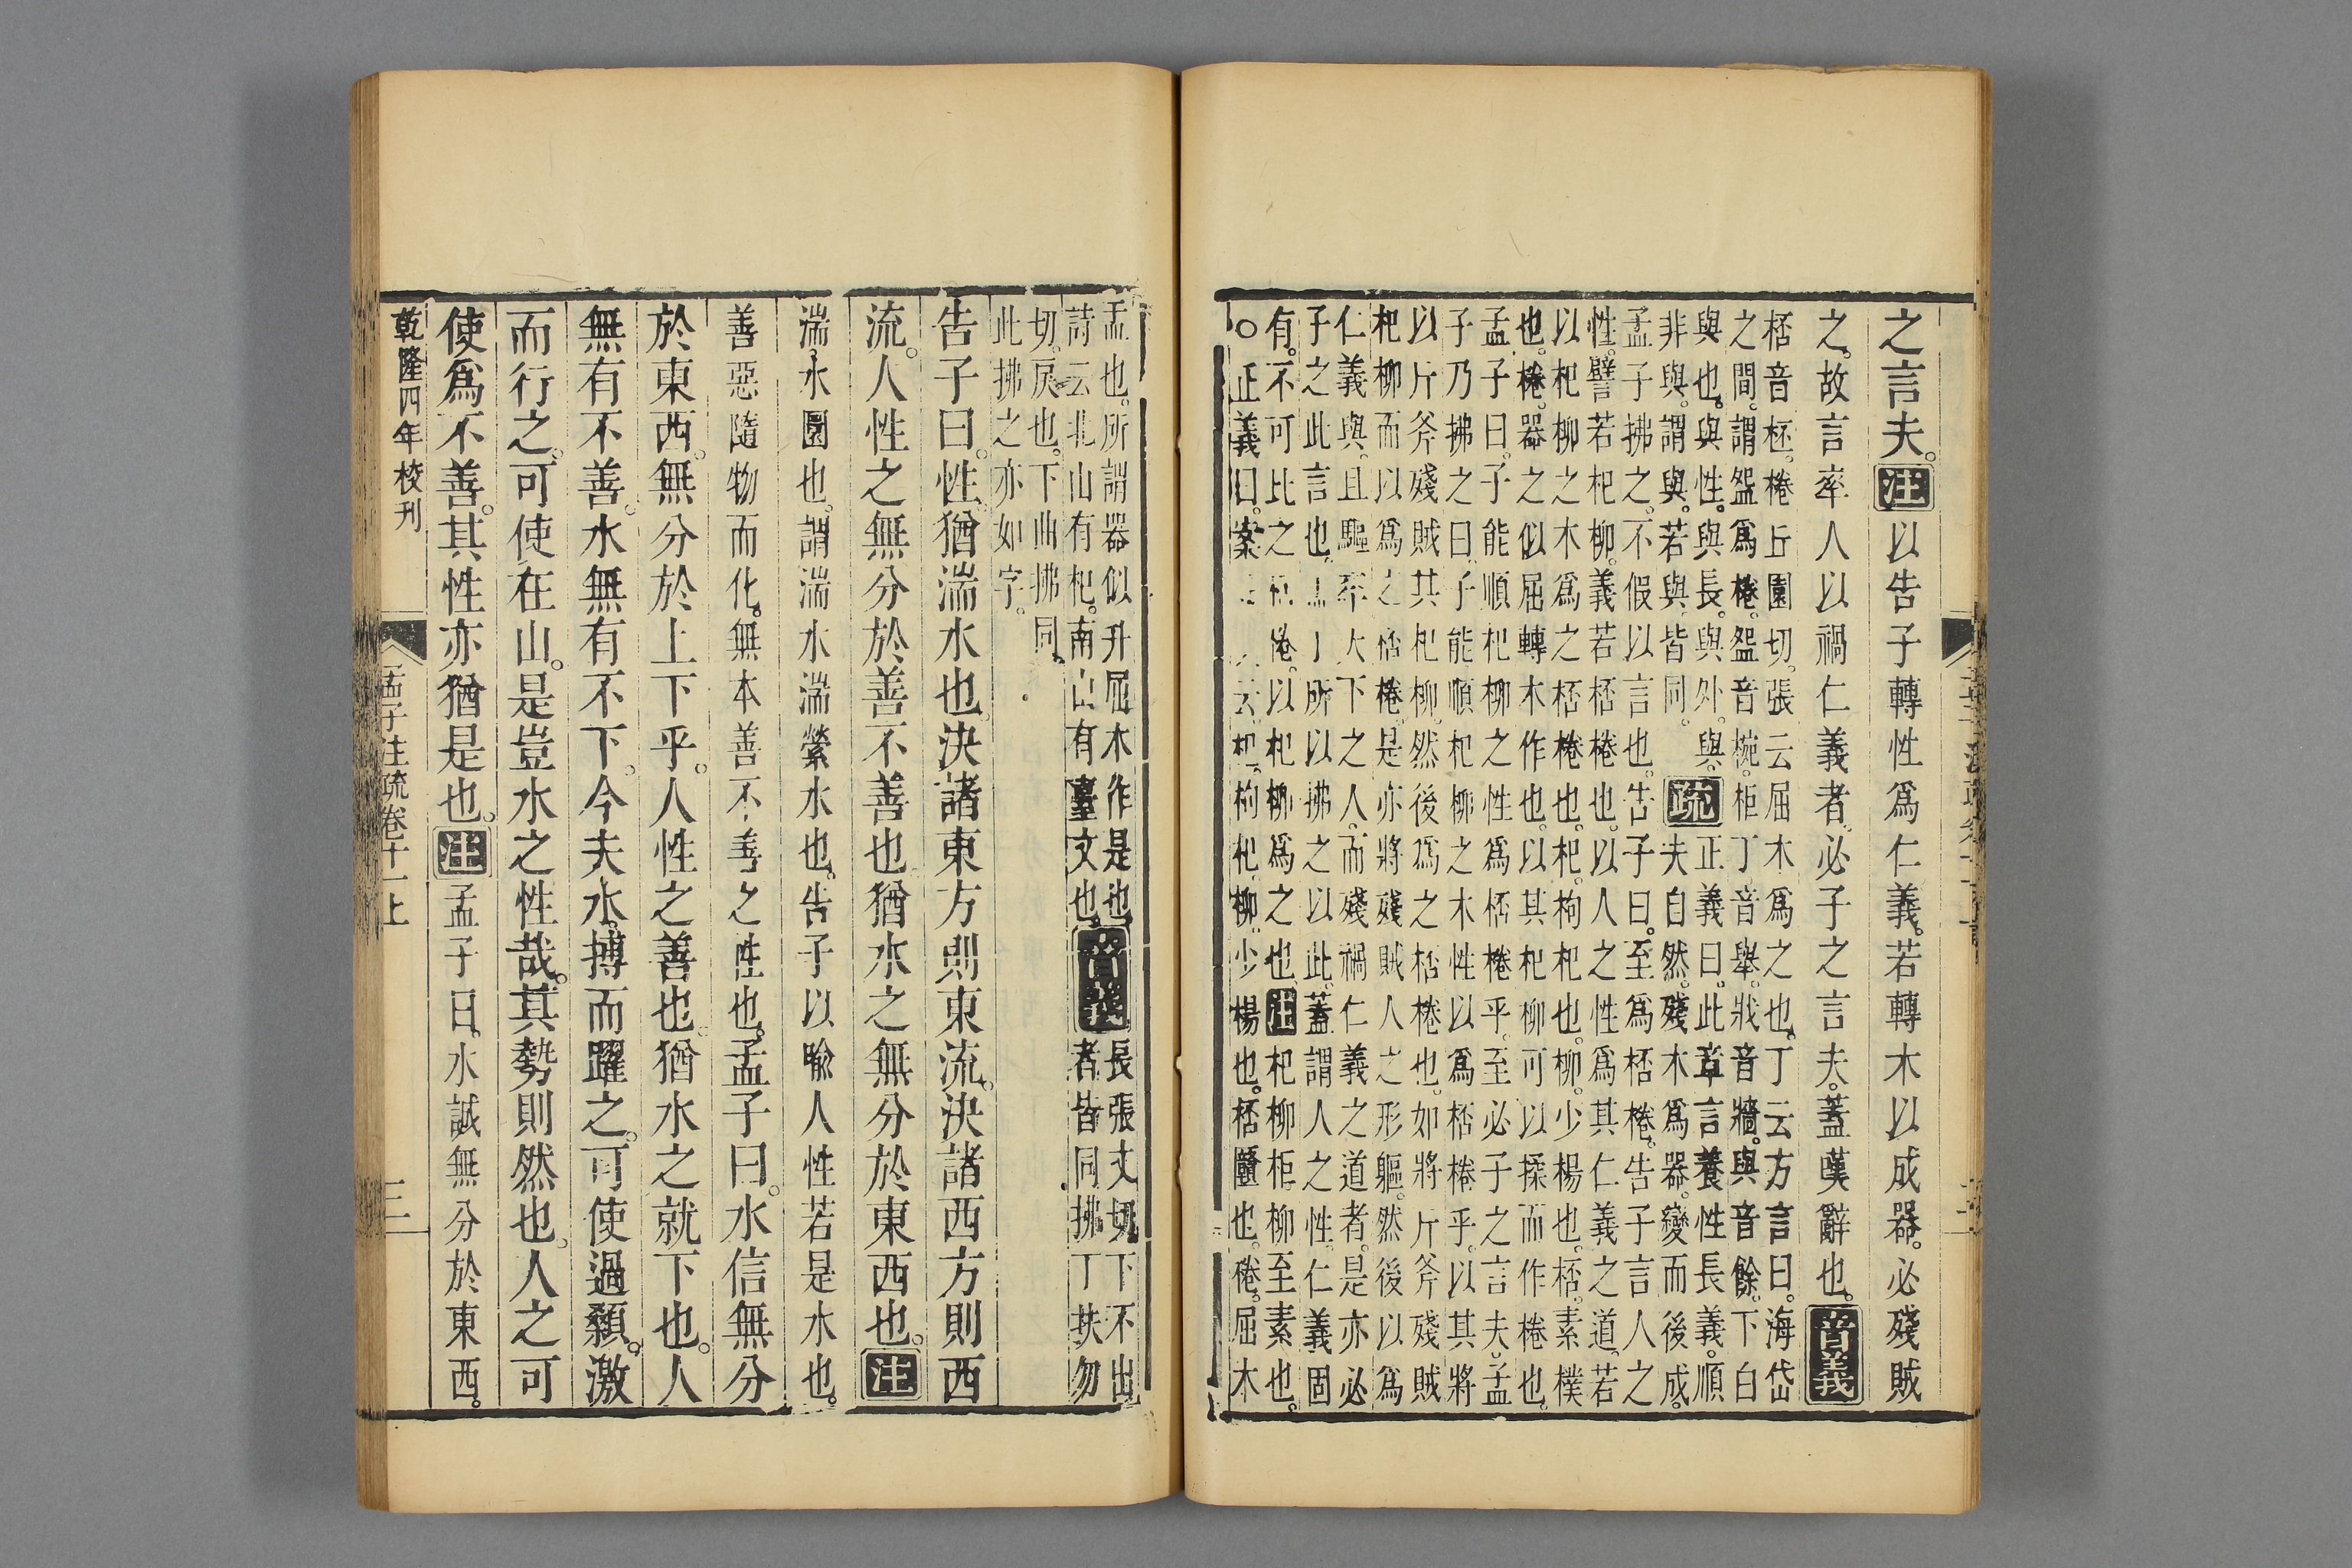 之言夫。注以告子轉性爲仁義。若轉木以成器。必殘賊
之。故言率人以禍仁義者。必子之言夫。蓋嘆辭也。音義
桮音柸。棬丘園切。張云屈木爲之也。丁云方言曰。海岱
之間。謂盌爲棬。盌音椀。柜丁音舉。戕音牆。與音餘。下白
與也。與性。與長。與外。與。疏正義曰。此章言養性長義。順
非與。謂與。若與。皆同。夫自然。殘木爲器。變而後成。
孟子拂之。不假以言也。告子曰。至爲桮棬。告子言人之
性。譬若杞柳。義若桮棬也。以人之性爲其仁義之道。若
以杞柳之木爲之桮棬也。杞。枸杞也。柳。少楊也。桮。素樸
也。棬。器之似屈轉木作也。以其杞柳可以揉而作棬也。
孟子曰。子能順杞柳之性爲桮棬乎。至必子之言夫。孟
子乃拂之曰。子能順杞柳之木性以爲桮棬乎。以其將
以斤斧殘賊其杞柳。然後爲之桮棬也。如將斤斧殘賊
杞柳而以爲之桮棬。是亦將殘賊人之形軀。然後以爲
仁義與。且驅率下之人。而殘禍仁義之道者。是亦必
子之此言也。所以拂之以此。蓋謂人之性。仁義固
有。不可比之桮棬。以杞柳爲之也。注杞柳柜柳至素也。
○正義曰。案云。杞。枸杞。柳。少楊也。桮。也。棬。屈木
盂也。所謂器似升屈木作是也。音義長張丈切下不出
詩云北山有杞。南山有臺文也。者皆同拂丁扶勿
切。戾也。下曲拂同。
此拂之亦如字。
告子曰。性猶湍水也。決諸東方則東流。決諸西方則西
流。人性之無分於善不善也猶水之無分於東西也。注
湍水圜也。謂湍水湍縈水也。告子以喻人性若是水也。
善惡隨物而化。無本善不善之性也。孟子曰。水信無分
於東西。無分於上下乎。人性之善也。猶水之就下也。人
無有不善。水無有不下。今夫水。搏而躍之。可使過顙。激
而行之。可使在山。是豈水之性哉。其勢則然也。人之可
使爲不善。其性亦猶是也。注孟子曰。水誠無分於東西。
乾隆四年校刊
孟子注疏卷十一上
三